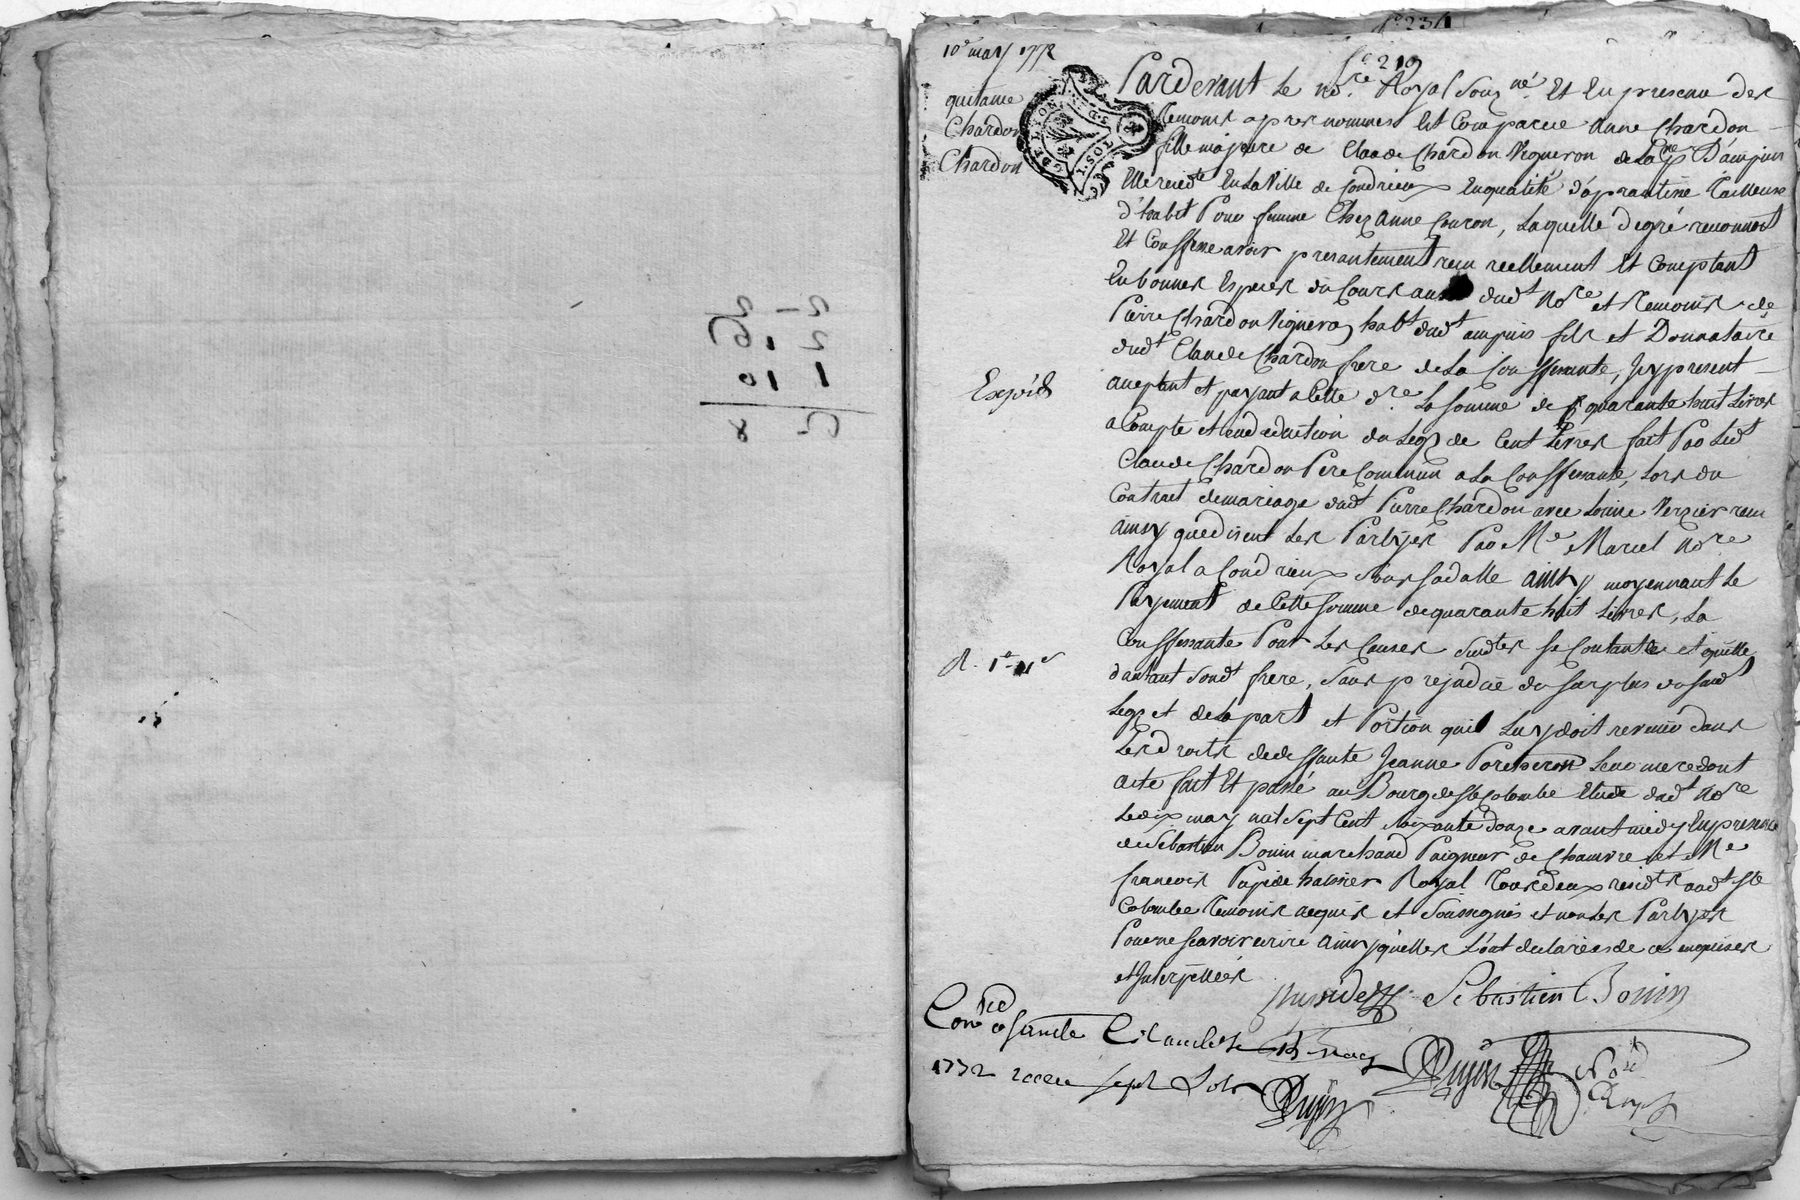 234
210
10e may 1772
quitance
Chardon
Chardon
G. DE LYON
1. SOL
Pardevant le nore. Royal souzné. Et En presence des
temoins apres nommés Est Comparue anne Chardon
fille majeure de Claude Chardon Vigneron de La psse D'ampuis
Elle residte En la Ville de Condrieux En qualité d'aprantisse tailleuse
d'habit Pour femme Chez anne Couron, Laquelle de gré reconnoit
Et Confesse avoir presantement reçu reellement Et Comptant
En bonnes Especes du Cours dudt Nore et temoins de
Pierre Chardon Vigneron habt dudt ampuis fils et Donnataire
dudt Claude Chardon frere de La Conffessante, jcy present
aceptant et payant a Cette dre. La somme de quarante huit Livres
a Compte et en deduction du Legs de Cent Livres fait Par Ledt
Claude Chardon Pere Commun a La Conffessante, Lors du
Contract de mariage dudt Pierre Chardon avec Verzier recu
ainsy que disent Les Partyes Par Me Marcel Nore
Royal a Condrieux Sous sa datte ainsy moyennant Le
Payement de Cette somme de quarante huit Livres, La
Conffessante Pour Les Causes Susdtes se Contante et quitte
d'autant Sondt frere, Sans prejudice du surplus dususdt
Legs et de La part et Portion quil Luy doit revenir dans
Les droits de deffunte Jeanne Leur mere dont
acte fait Et passé au Bourg de Ste Colombe Etude dudt Nore
Le dix may mil Sept Cent Soixante douze avant midy En presence
de Sébastien Bonin marchand Peigneur de Chanvre et Me
francois Pupide huissier Royal tous deux residts audt Ste
Colombe temoins requis et Soussignés et non Les Partyes
Pour ne scavoir ecrire ainsy qu'elles L'ont declarées de ce enquises
et Interpellées
Expédié
Sébastien Bonin
1772 sept sols